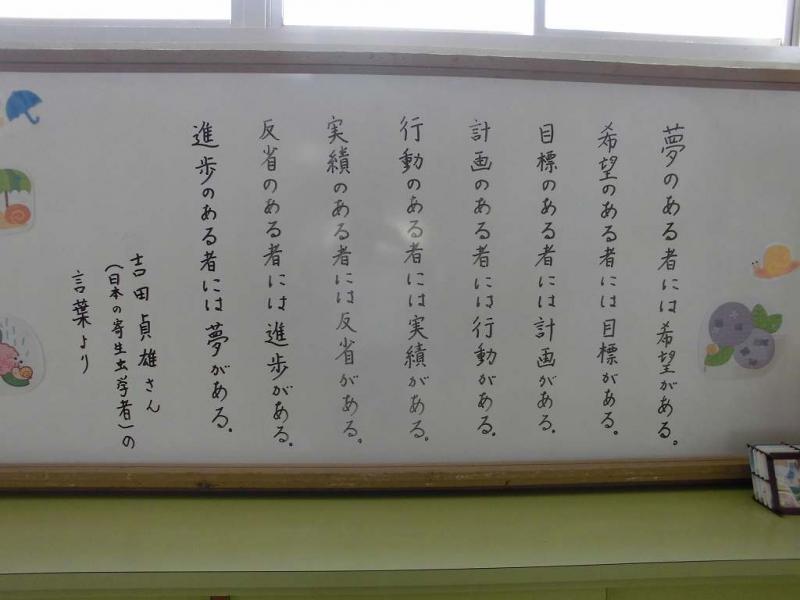 夢のある者には希望がある。
希望のある者には目標がある。
目標のある者には計画がある。
計画のある者には行動がある。
行動のある者には実績がある。
実績のある者には反省がある。
反省のある者には進歩がある。
進歩のある者には夢がある。
吉田貞雄さん
(日本の寄生虫学者)の
言葉より